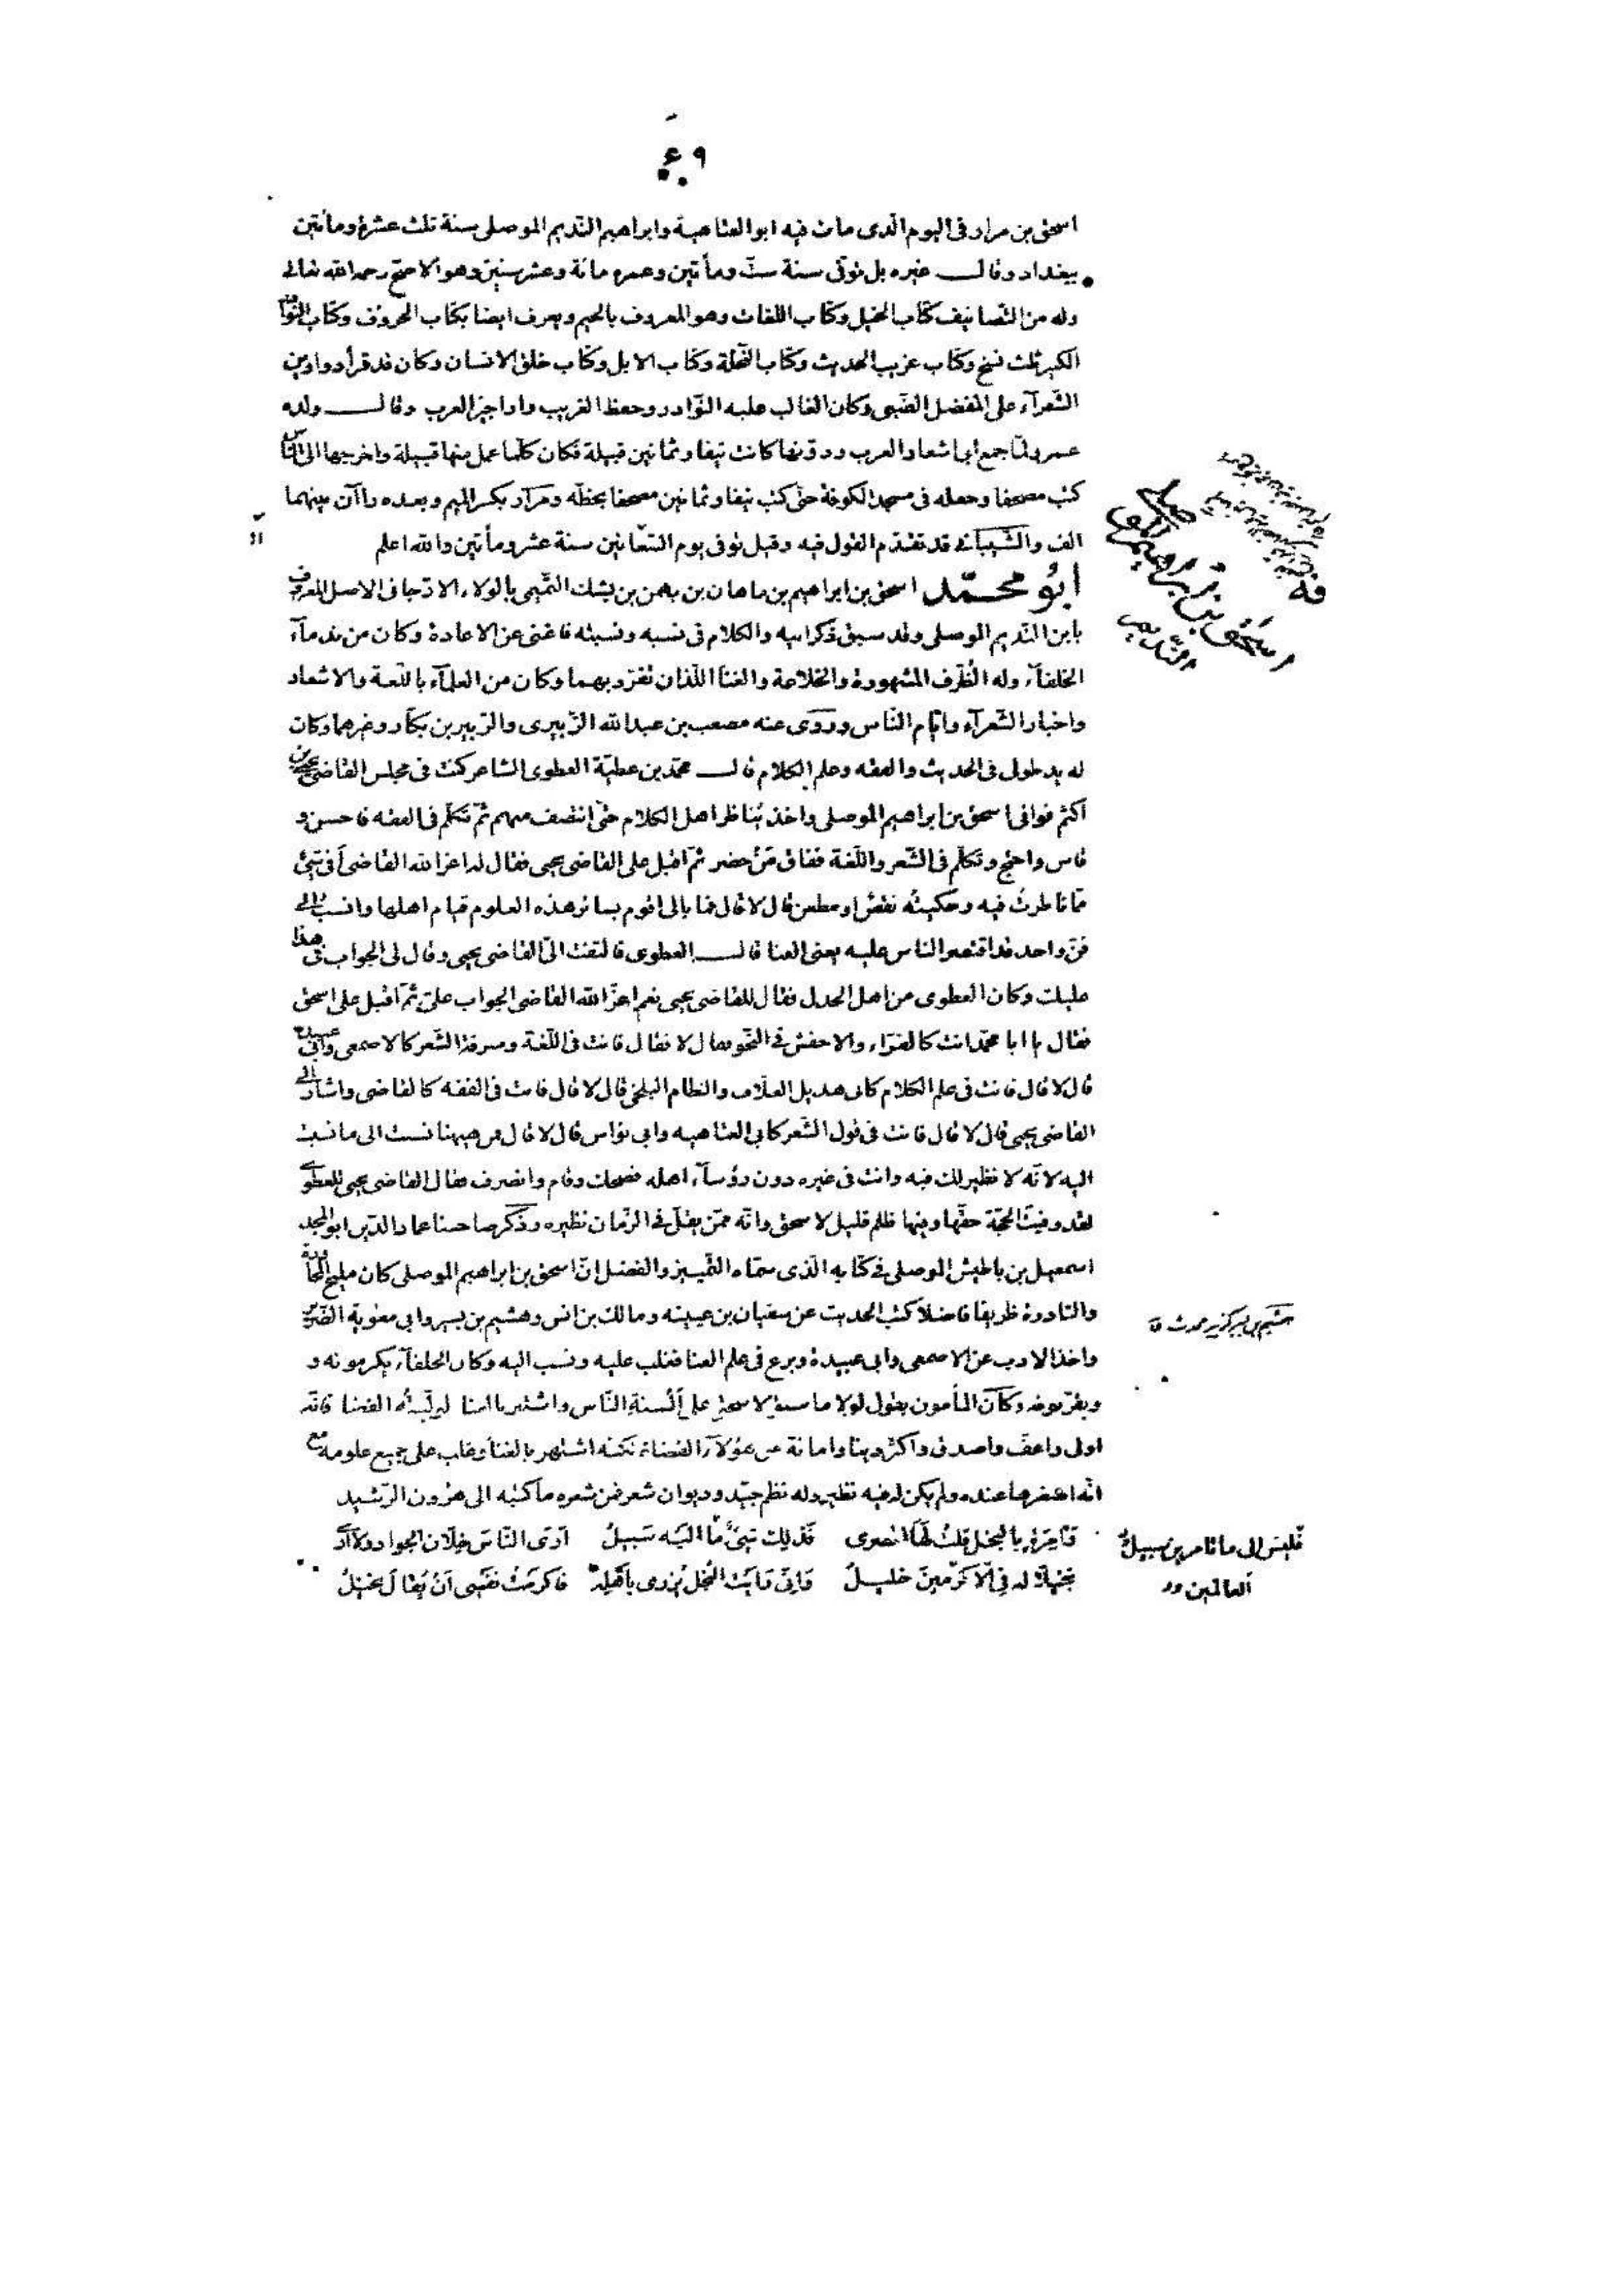 ٩٤
اسحق بن مرار فى اليوم الّذى مات فيه ابو العتاهية وابراهيم النّديم الموصلى سنة ثلث عشرة ومأتين
ببغداد وقال غيره بل توفّى سنة ستّ ومأتين وعمره مائة وعشر سنين وهو الاصحّ رحمه الله تعالى
وله من التّصانيف كتاب الخيل وكتاب اللغات وهو المعروف بالجيم ويعرف ايضا بكتاب الحروف وكتاب النّوادر
الكبير ثلث نسخ وكتاب غريب الحديث وكتاب النّحلة وكتاب الابل وكتاب خلق الانسان وكان قد قرأ دواوين
الشّعرآء على المفضل الضّبى وكان الغالب عليه النّوادر وحفظ الغريب واراجيز العرب وقال ولده
عمرو لمّا جمع ابى اشعار العرب ودوّنها كانت نيفا وثمانين قبيلة فكان كلّما عمل منها قبيلة واخرجها الى النّاس
كتب مصحفا وجعله فى مسجد الكوفة حتّى كتب نيفا وثمانين مصحفا بخطّه ومرار بكسر الميم وبعده راآن بينهما
الف والشّيبانى قد تقدّم القول فيه وقيل توفى يوم السّعانين سنة عشر ومأتين والله اعلم
أبُو محمّد اسحق بن ابراهيم بن ماهان بن بهمن بن نسك التّميمى بالولاء الارّجانى الاصل المعروف
بابن النّديم الموصلى وقد سبق ذكر ابيه والكلام فى نسبه ونسبته فاغنى عن الاعادة وكان من ندمآء
الخلفآء وله الظّرف المشهورة والخلاعة والغنا اللّذان تفرّد بهما وكان من العلمآء باللّغة والاشعار
واخبار الشّعرآء وايّام النّاس وروى عنه مصعب بن عبد الله الزّبيرى والزّبير بن بكّار وغيرهما وكان
له يد طولى فى الحديث والفقه وعلم الكلام قال محمّد بن عطيّة العطوى الشاعر كنت فى مجلس القاضى يحيى بن
اكثم فوافى اسحق بن ابراهيم الموصلى واخذ يُناظر اهل الكلام حتّى انتصف منهم ثمّ تكلّم فى الفقه فاحسن و
قاس واحتج وتكلّم فى الشّعر واللّغة ففاق مَنْ حضر ثمّ اقبل على القاضى يحيى فقال له اعز الله القاضى أفى شئ
ممّا ناظرتُ فيه وحكيتُه نقصٌ او مطعن قال لا قال فما بالى اقوم بسائر هذه العلوم قيام اهلها وانسب الى
فنّ واحد قد اقتصر الناس عليه يعنى الغنا قال العطوى فالتفت الىّ القاضى يحيى وقال لى الجواب فى هذا
عليك وكان العطوى من اهل الجدل فقال للقاضى يحيى نعم اعزّ الله القاضى الجواب علىّ ثمّ اقبل على اسحق
فقال يا ابا محمّد انت كالفرّاء والاخفش فى النّحو فقال لا فقال فانت فى اللّغة ومعرفة الشّعر كالاصمعى وابى عبيدة
قال لا قال فانت فى علم الكلام كابى هذيل العلّاف والنظام البلخى قال لا قال فانت فى الفقه كالقاضى واشار الى
القاضى يحيى قال لا قال فانت فى قول الشّعر كابى العتاهيه وابى نواس قال لا قال فمن ههنا نسبت الى ما نسبت
اليه لانّه لا نظير لك فيه وانت فى غيره دون رؤسآء اهله فضحك وقام وانصرف فقال القاضى يحيى للعطوى
لقد وفيت الحجّة حقّها وفيها ظلم قليل لاسحق وانّه ممّن يقلّ فى الزّمان نظيره وذكر صاحبنا عماد الدّين ابو المجد
اسمعيل بن باطيش الموصلى فى كتابه الّذى سمّاه التّمييز والفصل انّ اسحق بن ابراهيم الموصلى كان مليح المحاورة
والنّادرة ظريفا فاضلا كتب الحديث عن سفيان بن عيينه ومالك بن انس وهشيم بن بشير وابى معوية الضّرير
واخذ الادب عن الاصمعى وابى عبيدة وبرع فى علم الغنا فغلب عليه ونسب اليه وكان الخلفآء يكرمونه و
ويقرّبونه وكان المأمون يقول لولا ما سبق لاسحق على ألسنة النّاس واشتهر بالغنا لولّيته القضا فانّه
اولى واعفّ واصدق واكثر دينا وامانة من هؤلآء القضاة لكنه اشتهر بالغنا وغلب على جميع علومه مع
انّه اصغرها عنده ولم يكن له فيه نظير وله نظم جيّد وديوان شعر فمن شعره ما كتبه الى هرون الرّشيد
وَآمِرَةٍ بالبخل قلتُ لهَا اقصرى فذلك شئٌ ما اليه سَبيلُ ارى النّاسَ خلّان الجواد ولا ارى
بخيلًا له فى الاكرمينَ خليلُ وَانّى رَايت البُخل يزرى باهْله فاكرمتُ نفسى انْ يُقالَ بخيلُ
اسحق بن ابراهيم
النّديم
هشيم بن بشير محدث
فليس الى ما تأمرين سبيل
العالمين